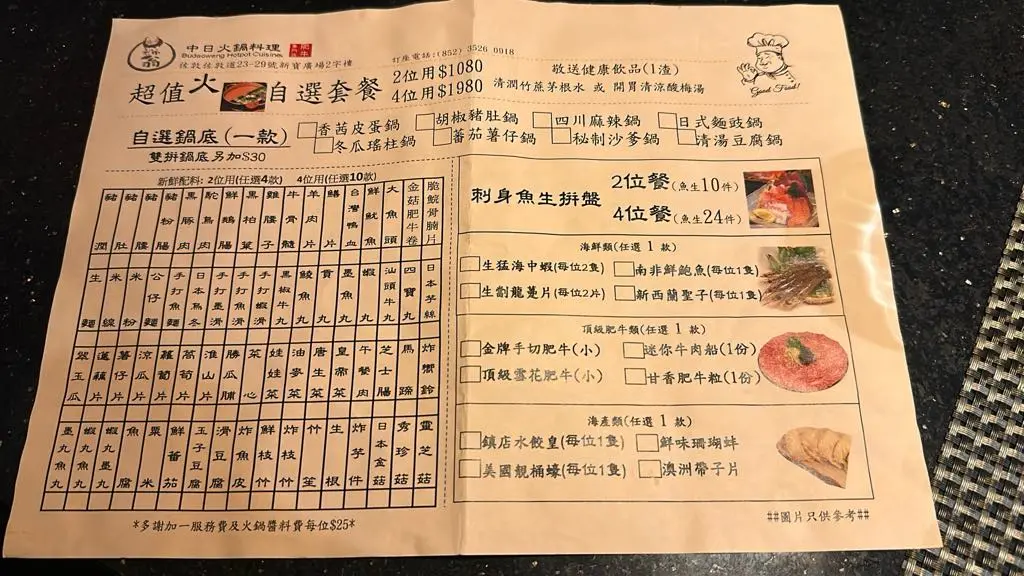 中日火鍋料理
Budaoweng Hotpot Cuisine
佐敦佐敦道23-29號新寶廣場2字樓
訂座電話:(852) 3526 0918
超值火鍋自選套餐
2位用$1080
4位用$1980
敬送健康飲品(1渣)
清潤竹蔗茅根水 或 開胃清涼酸梅湯
Good Food!
自選鍋底(一款)
雙拚鍋底另加$30
香茜皮蛋鍋 胡椒豬肚鍋 四川麻辣鍋 日式麵豉鍋
冬瓜瑤柱鍋 蕃茄薯仔鍋 秘制沙爹鍋 清湯豆腐鍋
新鮮配料: 2位用(任選4款) 4位用(任選10款)
豬潤 豬肚 豬腰 豬粉腸 黑豚肉 鴕鳥肉 鮮鵝腸 黑柏葉 雞腰子 牛骨髓 羊肉片 鱔片 台灣鴨血 鮮魷魚 大魚頭 金菇肥牛卷 脆鯇骨腩片
生麵 米線 米粉 公仔麵 手打魚麵 日本烏冬 手打墨滑 手打魚滑 手打蝦滑 黑椒牛丸 鯪魚丸 貢丸 墨魚丸 蝦丸 汕頭牛丸 四寶丸 日本芋絲
翠玉瓜 蓮藕片 薯仔片 涼瓜片 蘿蔔片 萵筍片 淮山片 勝瓜脯 菜心 娃娃菜 油麥菜 唐生菜 皇帝菜 午餐肉 芝士腸 馬蹄 炸響鈴
墨丸魚丸 蝦丸墨丸 蝦丸魚丸 魚腐 粟米 鮮蕃茄 玉子豆腐 滑豆腐 炸魚皮 鮮枝竹 炸枝竹 竹笙 生根 炸芋件 日本金菇 秀珍菇 靈芝菇
刺身魚生拚盤
2位餐(魚生10件)
4位餐(魚生24件)
海鮮類(任選 1 款)
生猛海中蝦(每位2隻) 南非鮮鮑魚(每位1隻)
生劏龍躉片(每位2片) 新西蘭聖子(每位1隻)
頂級肥牛類(任選 1 款)
金牌手切肥牛(小) 迷你牛肉船(1份)
頂級雪花肥牛(小) 甘香肥牛粒(1份)
海產類(任選 1 款)
鎮店水餃皇(每位1隻) 鮮味珊瑚蚌
美國靚桶蠔(每位1隻) 澳洲帶子片
*多謝加一服務費及火鍋醬料費每位$25*
##圖片只供參考##